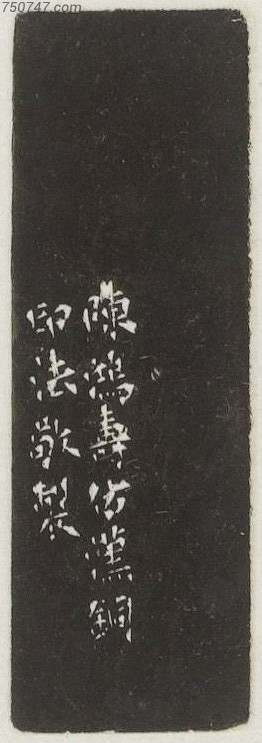 750747.com
陳鴻壽仿漢銅
印法敬製